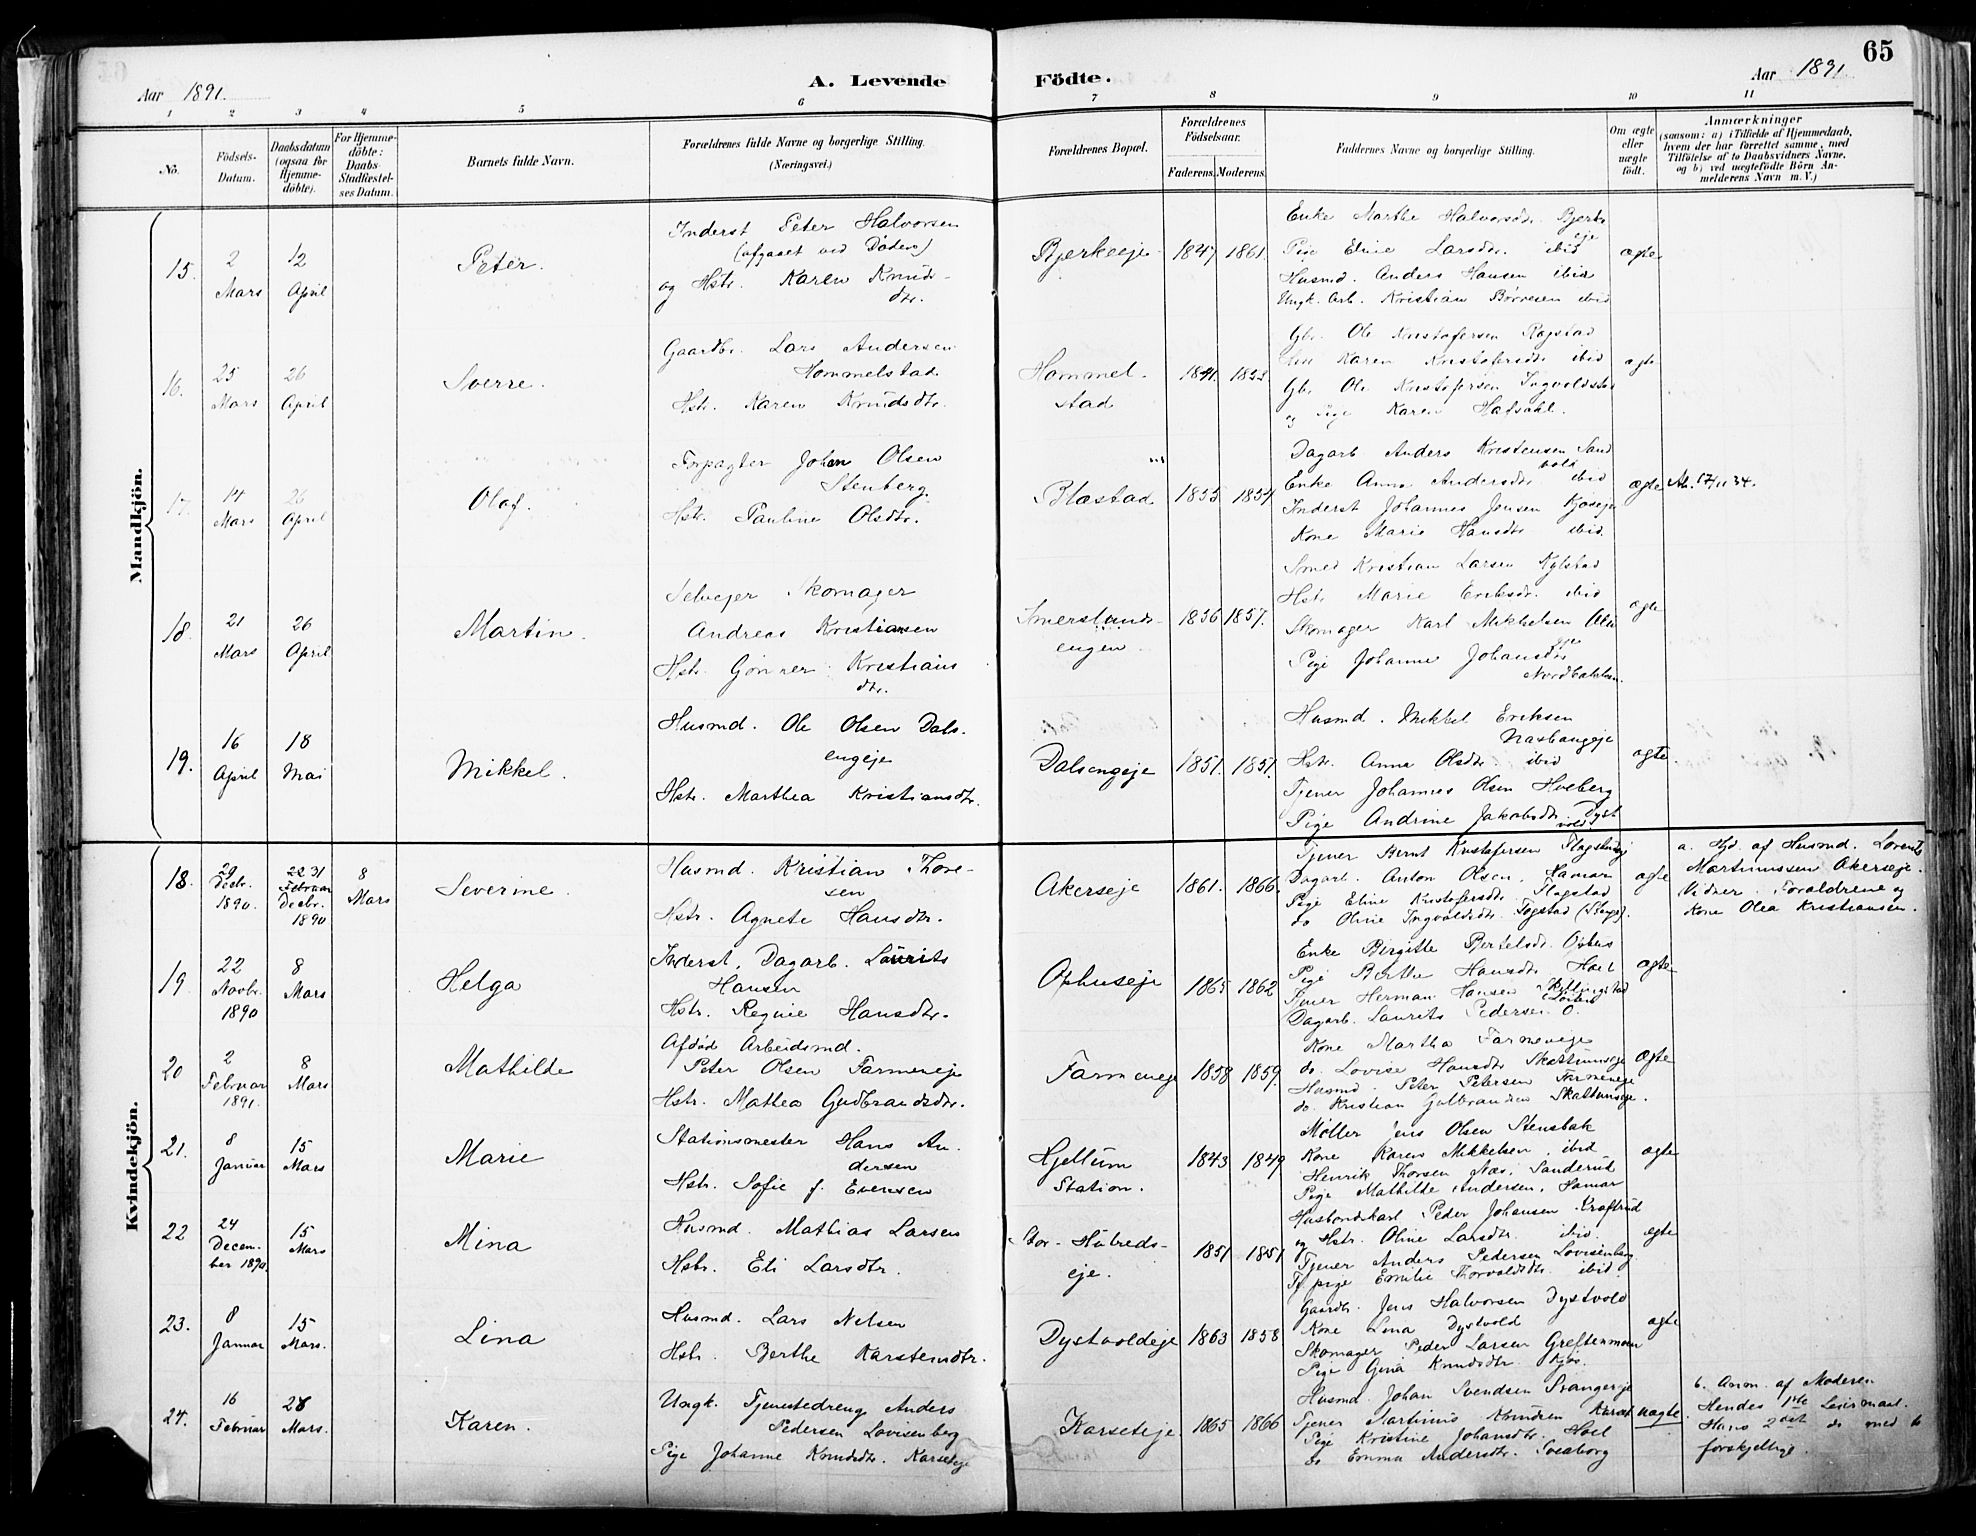 65
Aar 1891.
A. Levende
Födte.
Aar 1891
1 2 3 4 5 6 7 8 9 10 11
No.
Födsels-
Datum.
Daabsdatum
(ogsaa for
Hjemme-
döbte).
For Hjemme-
döbte:
Daabs-
Stadfæstel-
ses Datum.
Barnets fulde Navn.
Forældrenes fulde Navne og borgerlige Stilling.
(Næringsvei.)
Forældrenes Bopæl.
Forældrenes
Födselsaar.
Faderens.
Moderens.
Faddernes Navne og borgerlige Stilling.
Om ægte
eller
uægte
født.
Anmærkninger
(saasom: a) i Tilfælde af Hjemmedaab,
hvem der har forrettet samme, med
Tilföielse af to Daabsvidners Navne,
og b) ved uægtefödte Börn An-
melderens Navn m. V.)
Mandkjön.
15.
2
Mars
12
April
Peter.
Inderst Peter Halvorsen
(afgaaet ved Døden)
og Hstr. Karen Knuds-
dtr.
Bjerkeeje
1847
1861
Enke Marthe Halvorsdtr. Bjerke
eje
Pige Eline Larsdtr. ibid
Husmd. Anders Hansen ibid
Ungk. Arb. Kristian Börresen ibid
ægte
16.
25
Mars
26
April
Sverre.
Gaardbr. Lars Andersen
Hommelstad.
Hstr. Karen Knudsdtr.
Hommel-
stad
1841
1853
Gbr. Ole Kristofersen Rogstad
Karen Kristofersdtr ibid
Gbr. Ole Kristofersen Ingvoldstad
og Pige Karen Hafsahl.
ægte
17.
14
Mars
26
April
Olaf.
Forpagter Johan Olsen
Stenberg.
Hstr. Pauline Olsdtr.
Blæstad
1855
1854
Dagarb Anders Kristensen Sand
vold
Enke Anna Andersdtr ibid
Inderst Johannes Jensen Kjoseje
Kone Marie Hansdtr ibid.
ægte
At. 17/11 34.
18.
21
Mars
26
April
Martin.
Selvejer Skomager
Andreas Kristiansen
Hstr. Gönner Kristians
dtr.
Imerslunds-
engen
1836
1857.
Smed Kristian Larsen Kylstad
Hstr Marie Eriksdr. ibid
Skomager Karl Mikkelsen
Pige Johanne Johansdtr
Nordbækken.
ægte
19.
16
April
18
Mai
Mikkel.
Husmd. Ole Olsen Dals-
engeje
Hstr. Marthea Kristiansdtr.
Dalsengeje
1851.
1851.
Husmd. Mikkel Eriksen
Næsbangeje
Hstr. Anna Olsdtr ibid
Tjener Johannes Olsen Hveberg
Pige Andrine Jakobsdtr Dyst
vold
ægte.
Kvindekjön.
18.
29
Decbr.
1890.
22 31
Februar
Decbr.
1890
8
Mars
Severine.
Husmd. Kristian Thore-
sen
Hstr. Agnete Hansdtr.
Akerseje
1861.
1866.
Tjener Bernt Kristofersen Flagstad
Dagarb. Anton Olsen, Hamar
Pige Eline Kristofersdtr. Flagstad
do Oline Ingvoldsdtr. Togstad (Stange).
ægte
a. Hjd. af Husmd. Lorents
Martinussen Akerseje.
Vidner. Forældrene og
Kone Olea Kristiansen.
19.
22
Novbr.
1890
8
Mars
Helga
Inderst, Dagarb. Laurits
Hansen
Hstr. Regine Hansdtr.
Ophuseje
1865
1862
Enke Birgitte Bertelsdtr. Ophus
Pige Berthe Hansdtr Hoel
Tjener Herman Hansen
(Löiten)
Dagarb. Laurits Pedersen O.
ægte
20
2
Februar
1891.
8
Mars
Mathilde
Afdød Arbeidsmd.
Peter Olsen Farmeneje
Hstr. Mathea Gudbrandsdtr.
Farmeneje
1858
1859.
Kone Martha Farmeneje
do. Lovise Hansdtr Skattumseje
Husmd. Peter Petersen Farmeneje
do. Kristian Gulbrandsen Skattumseje.
ægte
21.
8
Januar
15
Mars
Marie
Stationsmester Hans An-
dersen
Hstr. Sofie f. Evensen
Hjellum
Station.
1843
1849
Møller Jens Olsen Stensbak
Kone Karen Mikkelsen, ibid
Henrik Thorsen Næs, Sanderud
Pige Mathilde Andersen, Hamar
ægte
22
24
Decem-
ber 1890.
15
Mars
Mina
Husmd. Mathias Larsen
Hstr. Eli Larsdtr.
Stor-Hubreds-
eje.
1851
1851
Husbondskarl Peder Johansen Kraftrud
og Hstr. Oline Larsdtr. ibid.
Tjener Anders Pedersen Lovisenberg
Tj pige Emilie Thorvaldsdtr. ibid.
ægte
23.
8
Januar
15
Mars.
Lina
Husmd. Lars Nelsen
Hstr. Berthe Karstensdtr.
Dystvoldeje
1863
1858
Gaardbr. Jens Halvorsen Dystvold
Kone Lina Dystvold
Skomager Peder Larsen Greftenmoen
Pige Gina Knudsdtr Kjos.
ægte
24.
16
Februar
28
Mars.
Karen.
Ungk. Tjenestedreng Anders
Pedersen Lovisenberg
Pige Johanne Knudsdtr. Karseteje
Karseteje.
1865
1866
Husmd. Johan Svendsen Stangereje
Tjener Martinus Knudsen Karset
Pige Kristine Johansdtr. Hoel
do Emma Andersdtr. Sveaborg
uægte.
b. Anm. af Moderen
Hendes 1ste Leiermaal.
Hans 2det do med to
forskjellige.